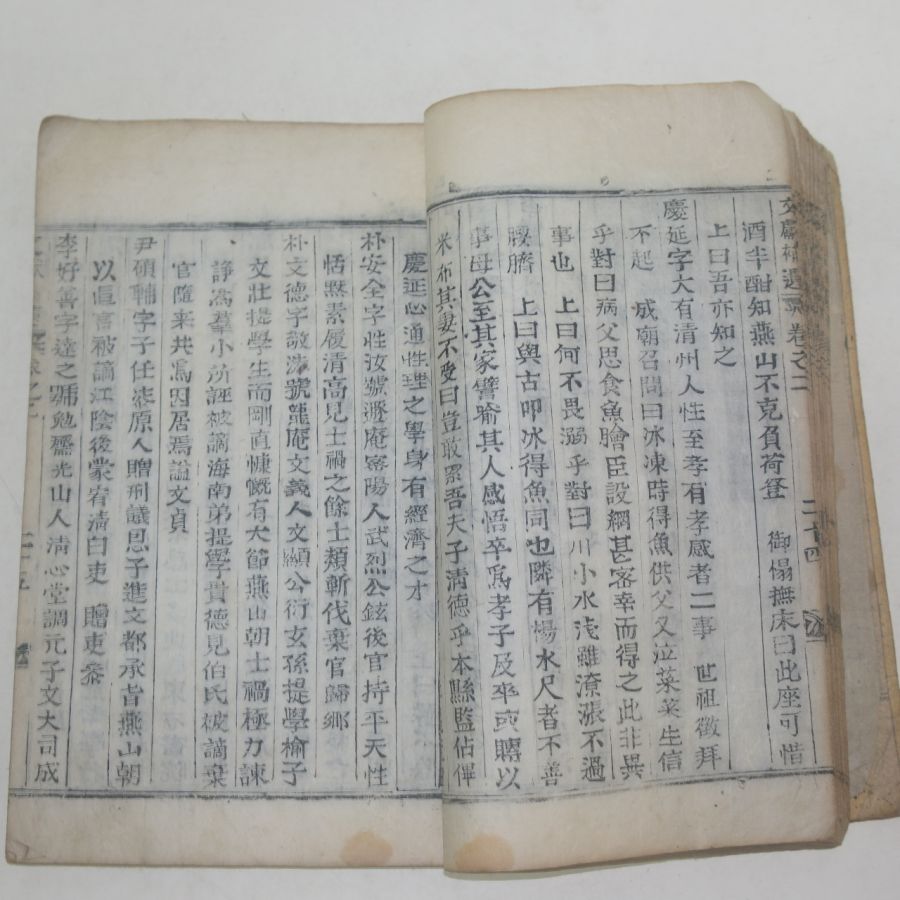 文獻補遺 卷之二 二十四
酒半酣知燕山不克負荷登 御榻撫床曰此座可惜
上曰吾亦知之
慶延字大有淸州人性至孝有孝感者二事 世祖徵拜
不起 成朝召問曰氷凍時得魚供父又泣菜菜生信
乎對曰病父思食魚膾臣設網甚密幸而得之此非異
事也 上曰何不畏溺乎對曰川小水淺雖潦漲不過
腰臍 上曰與古叩氷得魚同也隣有楊水尺者不善
事母公至其家譬喩其人感悟卒爲孝子及卒或賻以
米布其妻不受曰豈敢累吾夫子淸德乎本縣監佔倻
慶延心通性理之學身有經濟之才
朴安全字性汝號遯庵密陽人武烈公鉉後官持平天性
恬黙素履淸高見士禍之餘士類斬伐棄官歸鄕
朴文德字敬 號龍庵文義人文顯公衍玄孫提學楡子
文壯提學生而剛直慷慨有大節燕山朝士禍極力諫
諍爲羣小所誣被謫海南弟提學貴德見伯氏被謫棄
官隨來共爲因居焉謚文貞
尹碩輔字子任漆原人贈刑議思子進文都承旨燕山朝
以直言被謫江陰後蒙宥淸白吏 贈吏叅
李好善字達之號勉 光山人淸心堂調元子文大司成
二十五